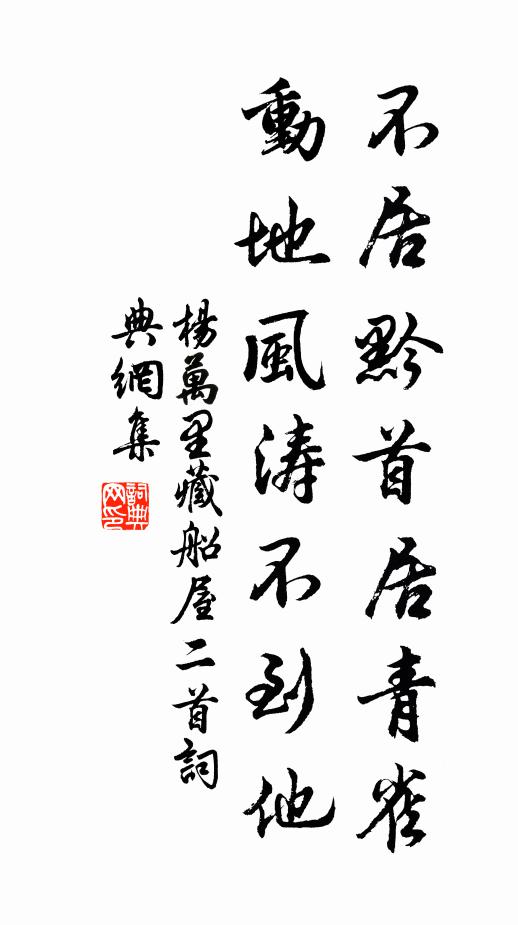 不居黔首居青雀
動地風涛不到他
楊萬里藏船屋二首詞
典網集
詞典网印